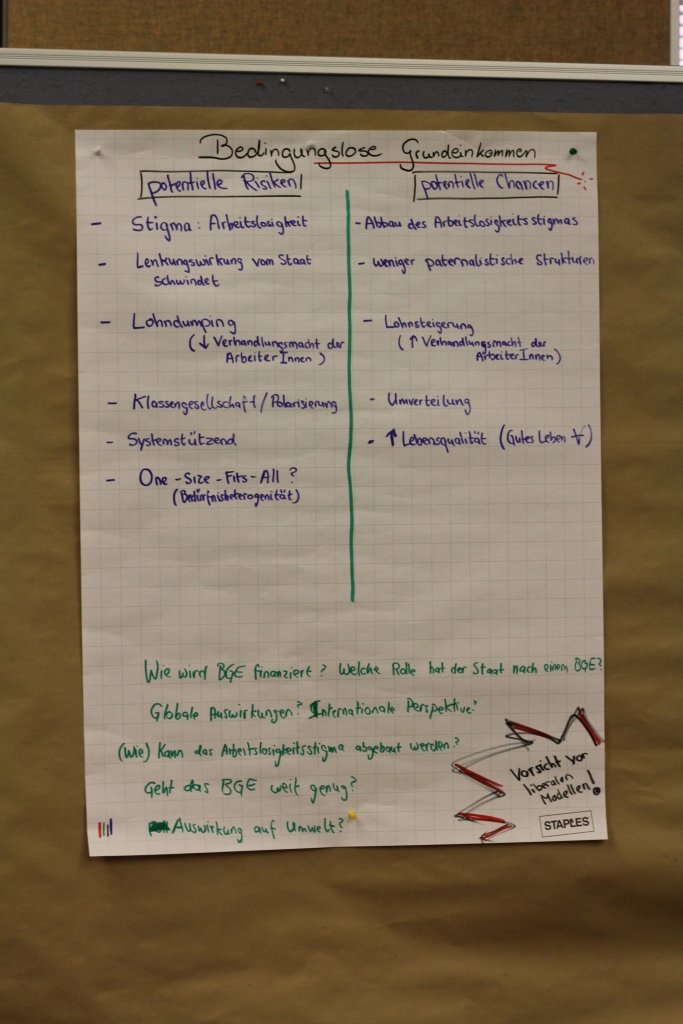 Bedingungslose Grundeinkommen
potentielle Risiken
- Stigma: Arbeitslosigkeit
- Lenkungswirkung vom Staat
schwindet
- Lohndumping
(↓ Verhandlungsmacht der
ArbeiterInnen)
- Klassengesellschaft/Polarisierung
- Systemstützend
- One-Size-Fits-All?
(Bedürfnisheterogenität)
potentielle Chancen
- Abbau des Arbeitslosigkeitsstigmas
- weniger paternalistische Strukturen
- Lohnsteigerung
(↑ Verhandlungsmacht der
ArbeiterInnen)
- Umverteilung
- ↑ Lebensqualität (Gutes Leben ∀)
Wie wird BGE finanziert? Welche Rolle hat der Staat nach einem BGE?
Globale Auswirkungen? Internationale Perspektive?
(Wie) Kann das Arbeitslosigkeitsstigma abgebaut werden?
Geht das BGE weit genug?
Auswirkung auf Umwelt?
Vorsicht vor
liberalen
Modellen!
STAPLES